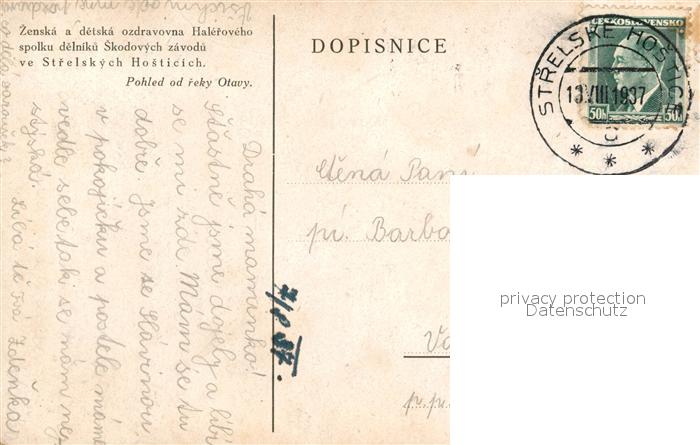 Ženská a dětská ozdravovna Haléřového
spolku dělníků Škodových závodů
ve Střelských Hošticích.
Pohled od řeky Otavy.
DOPISNICE
ČESKOSLOVENSKO
50h 50h
STŘELSKÉ HOŠTICE
13.VIII.1937
Drahá maminko!
Šťastně jsme dojely a líbí
se mi zde. Mám se tu
dobře. Jsme se Slávinou
v pokojíčku a postele máme
vedle sebe tak se mám nej
stýská. Líbá tě Zdeňka
Ctěná Paní
pí. Barbo
p.p.
privacy protection
Datenschutz